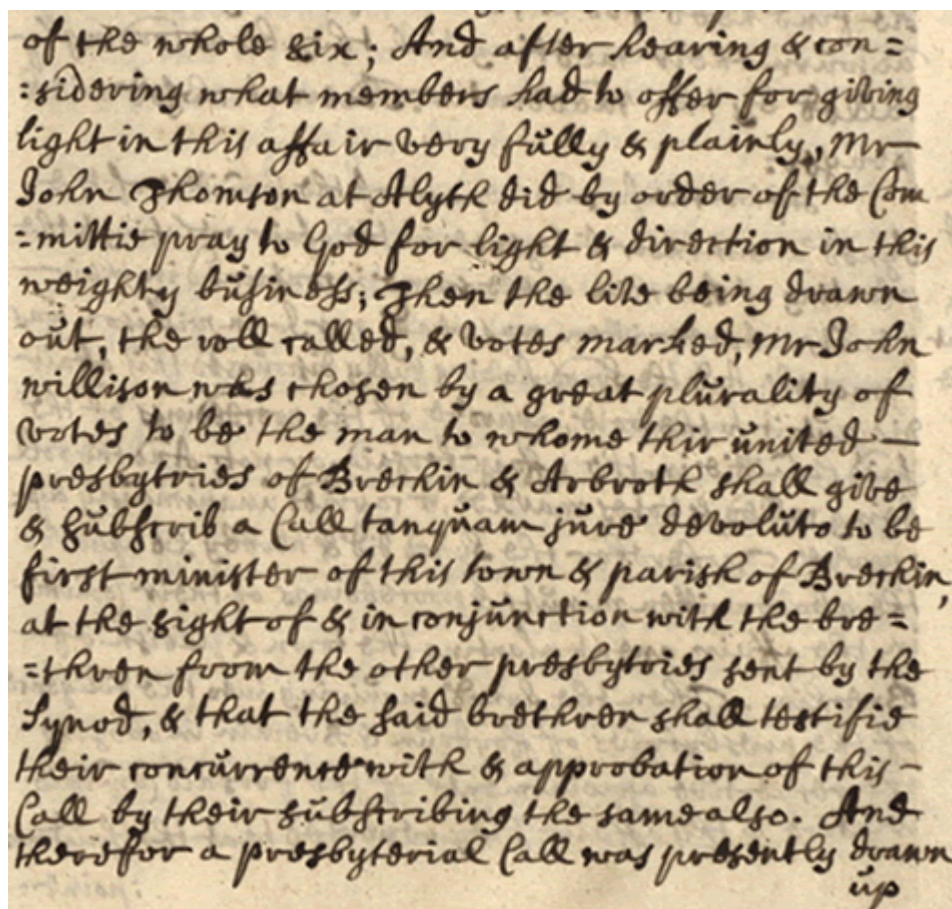 of the whole six; And after hearing & con=
=sidering what members had to offer for giving
light in this affair very fully & plainly, Mr
John Thomson at Alyth did by order of the Com
=mittie pray to God for light & direction in this
weighty business; Then the lite being drawn
out, the roll called, & votes marked, Mr John
willison was chosen by a great plurality of
votes to be the man to whome thir united —
presbytries of Brechin & Arbroth shall give
& subscrib a Call tanquam jure devoluto to be
first minister of this town & parish of Brechin,
at the sight of & in conjunction with the bre=
=thren from the other presbytries sent by the
Synod, & that the said brethren shall testifie
their concurrence with & approbation of this –
Call by their subscribing the same also. And
therefor a presbyterial Call was presently drawn
up